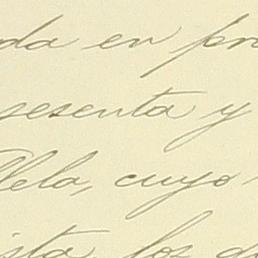 da en pr
sesenta y
Vela, cuyo
ista, los d